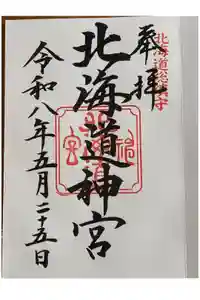 奉拝
北海道総鎮守
北海道神宮
令和八年五月二十五日